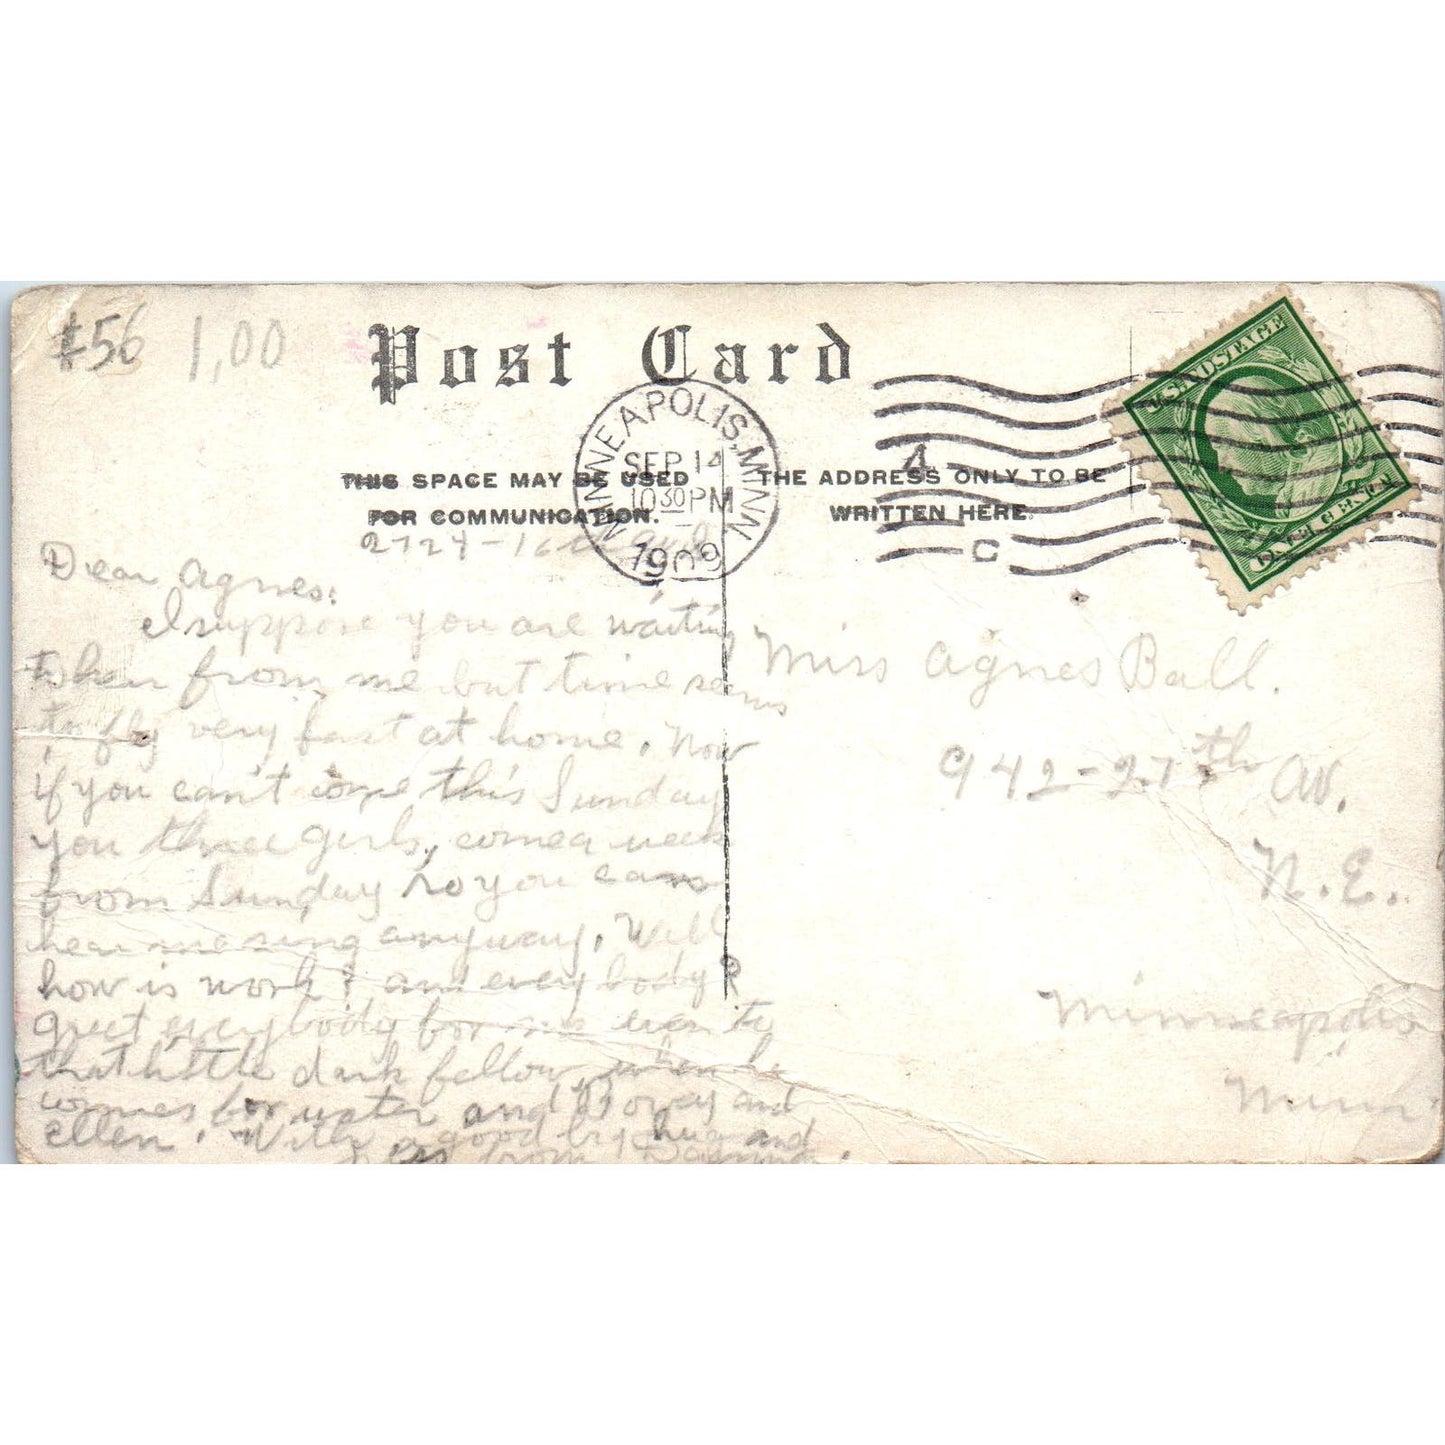 456 1,00
Post Card
MINNEAPOLIS, MINN.
SEP 14
10 30 PM
1909
4
C
U.S. POSTAGE
THIS SPACE MAY BE USED
FOR COMMUNICATION.
THE ADDRESS ONLY TO BE
WRITTEN HERE.
2724-16th ave S
Dear Agnes:
I suppose you are waiting
to hear from me but time seems
to fly very fast at home. Now
if you can't come this Sunday
you three girls, come a week
from Sunday so you can
hear me sing anyway. Well
how is work? and everybody?
greet everybody for me even to
that little dark fellow when he
comes for water and and
Ellen. With a good by hug and
from
Miss Agnes Ball.
942-27th Av.
N.E.
Minneapolis
Minn